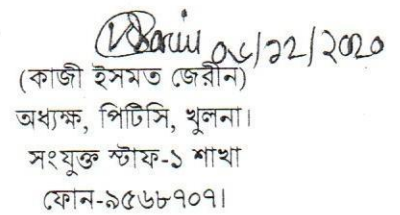 ০৮/১২/২০২০
(কাজী ইসমত জেরীন)
অধ্যক্ষ, পিটিসি, খুলনা।
সংযুক্ত স্টাফ-১ শাখা
ফোন-৯৫৬৮৭০৭।